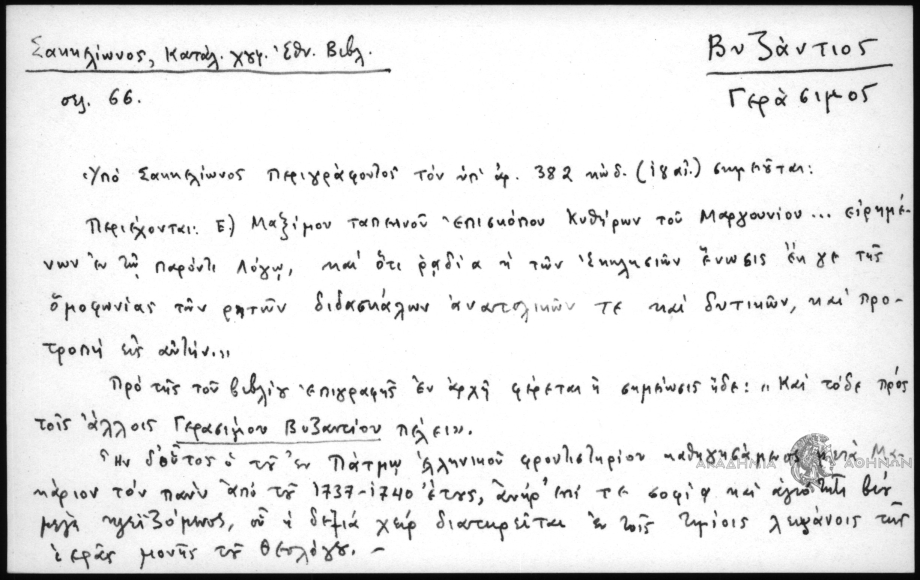 Σακκελίωνος, Κατάλ. χγφ. Ἐθν. Βιβλ.
Βυζάντιος
σελ. 66.
Γεράσιμος
Ὑπό Σακκελίωνος περιγράφοντος τόν ὑπ' ἀρ. 382 κώδ. (ιϛ αἰ.) σημειοῦται:
Περιέχονται: Ε.) Μαξίμου ταπεινοῦ ἐπισκόπου Κυθήρων τοῦ Μαργουνίου... εἰρημέ-
νων ἐν τῷ παρόντι λόγῳ, καί ὅτι ῥαδία ἡ τῶν ἐκκλησιῶν ἕνωσις ἔκ γε τῆς
ὁμοφωνίας τῶν ρητῶν διδασκάλων ἀνατολικῶν τε καί δυτικῶν, καί προ-
τροπή εἰς αὐτήν.»
Πρό τῆς τοῦ βιβλίου ἐπιγραφῆς ἐν ἀρχῇ φέρεται ἡ σημείωσις ἥδε: «Καί τόδε πρός
τοῖς ἄλλοις Γερασίμου Βυζαντίου πέλει».
Ἦν δ' οὗτος ὁ τοῦ ἐν Πάτμῳ ἑλληνικοῦ φροντιστηρίου καθηγησάμενος μετά Μα-
κάριον τόν πάνυ ἀπό τοῦ 1737-1740 ἔτους, ἀνήρ ἐπί τε σοφίᾳ καί ἁγιότητι βίου
μέγα κλεϊζόμενος, οὗ ἡ δεξιά χείρ διατηρεῖται ἐν τοῖς τιμίοις λειψάνοις τῆς
ἱερᾶς μονῆς τοῦ Θεολόγου. –
ΑΚΑΔΗΜΙΑ ΑΘΗΝΩΝ